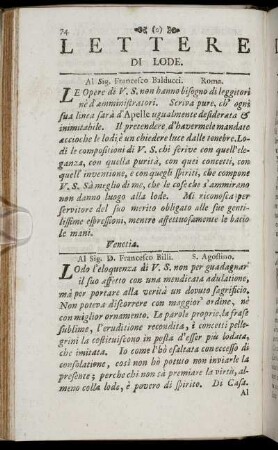 74
(o)
LETTERE
DI LODE.
Al Sig. Francesco Balducci. Roma.
LE Opere di V. S. non hanno bisogno di leggitori
nè d'amministratori. Scriva pure, ch' ogni
sua linea sarà d'Apelle ugualmente desiderata &
inimitabile. Il pretendere, d'havermele mandate
acciòche le lodi è un chiedere luce dalle tenebre. Lo-
di le compositioni di V. S. chi scrive con quell'ele-
ganza, con quella purità, con qui concetti, con
quell' inventione, e con quegli spiriti, che compone
V. S. Sà meglio di me, che le cose che s'ammirano
non danno luogo alla lode. Mi riconosca per
servitore del suo merito obligato alle sue genti-
lissime espressioni, mentre affettuosamente le bacio
le mani.
Venetia.
Al Sig. D. Francesco Billi. S. Agostino.
LOdo l'eloquenza di V. S. non per guadagnar'
il suo affetto con una mendicata adulatione,
mà per portare alla verità un dovuto sagrificio.
Non poteva discorrere con maggior' ordine, nè
con miglior ornamento. Le parole proprie, la frase
sublime, l'eruditione recondita, i concetti pelle-
grini la costituiscono in posta d'esser più lodata,
che imitata. Io come l'hò esaltata con eccesso di
consolatione, così non hò potuto non inviarle la
presente; perche chi non sà premiare la virtù, al-
meno colla lode, è povero di spirito. Di Casa.
Al